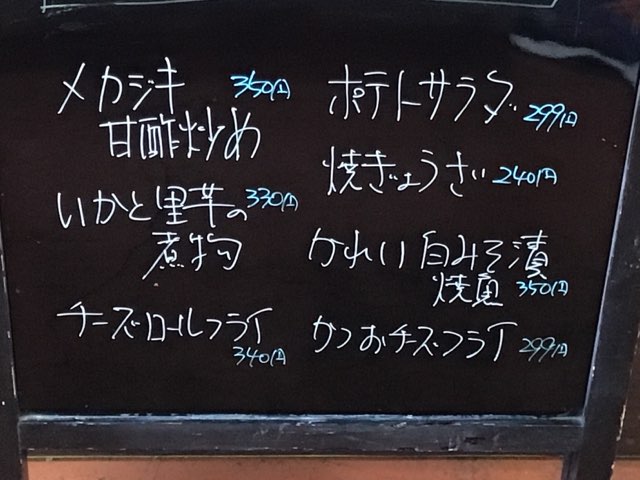 メカジキ 350円
甘酢炒め
いかと里芋の 330円
煮物
チーズロールフライ
340円
ポテトサラダ 299円
焼ぎょうざ 240円
かれい白みそ漬
焼魚 350円
かつおチーズフライ 299円